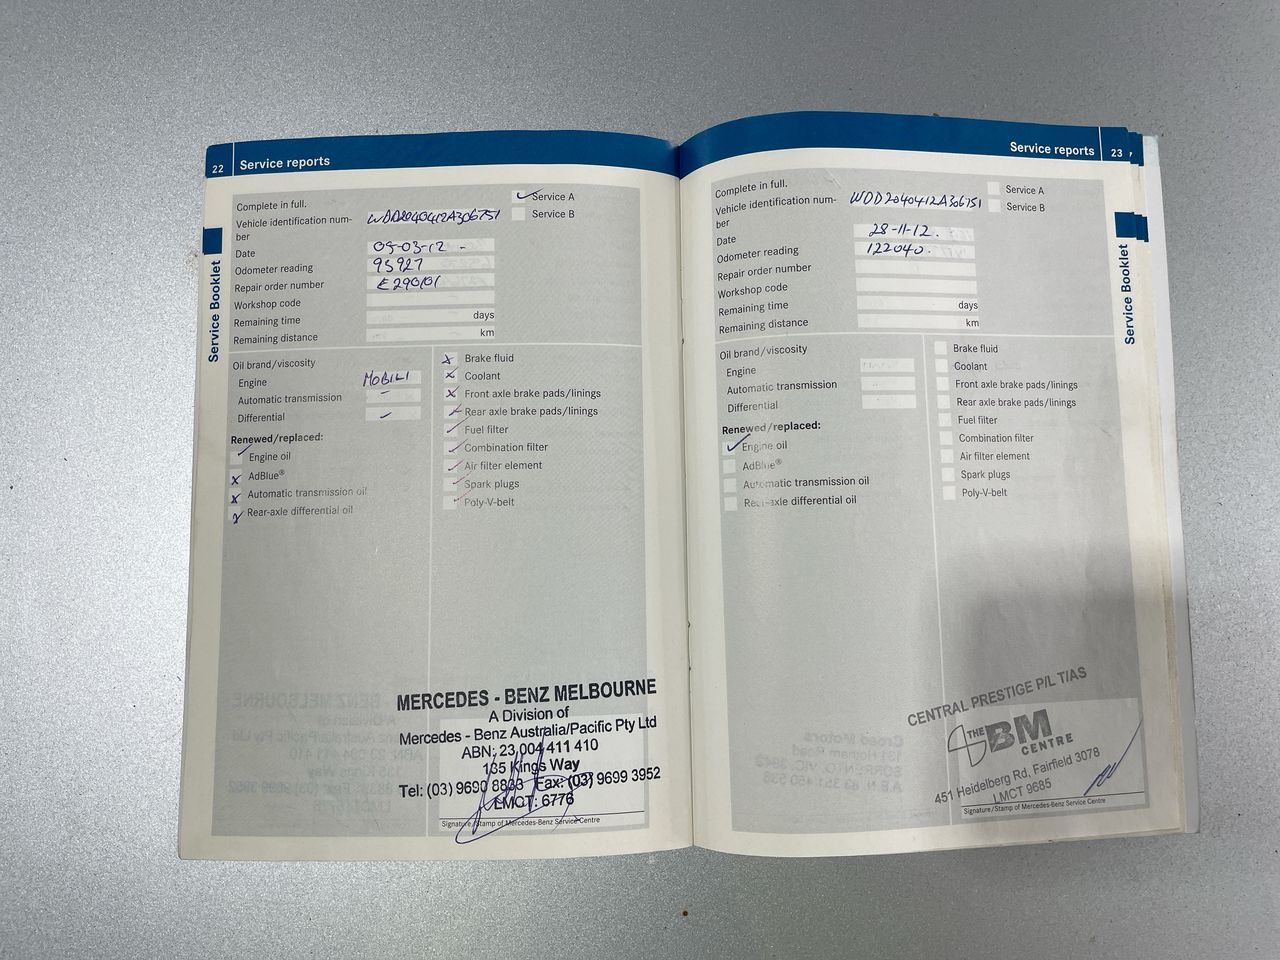 22 Service reports
Service Booklet
Complete in full.
Service A
Service B
Vehicle identification num-
ber
WDD2040412A306751
Date 05-03-12 -
Odometer reading 95927
Repair order number E290101
Workshop code
Remaining time days
Remaining distance km
Oil brand/viscosity
Engine MOBIL1
Automatic transmission
Differential
Renewed/replaced:
Engine oil
AdBlue®
Automatic transmission oil
Rear-axle differential oil
Brake fluid
Coolant
Front axle brake pads/linings
Rear axle brake pads/linings
Fuel filter
Combination filter
Air filter element
Spark plugs
Poly-V-belt
MERCEDES - BENZ MELBOURNE
A Division of
Mercedes - Benz Australia/Pacific Pty Ltd
ABN: 23 004 411 410
135 Kings Way
Tel: (03) 9690 8833 Fax: (03) 9699 3952
LMCT: 6776
Signature/Stamp of Mercedes-Benz Service Centre
Service reports 23
Service Booklet
Complete in full.
Service A
Service B
Vehicle identification num-
ber
WDD2040412A306751
Date 28-11-12.
Odometer reading 122040.
Repair order number
Workshop code
Remaining time days
Remaining distance km
Oil brand/viscosity
Engine
Automatic transmission
Differential
Renewed/replaced:
Engine oil
AdBlue®
Automatic transmission oil
Rear-axle differential oil
Brake fluid
Coolant
Front axle brake pads/linings
Rear axle brake pads/linings
Fuel filter
Combination filter
Air filter element
Spark plugs
Poly-V-belt
CENTRAL PRESTIGE P/L T/AS
THE BM
CENTRE
451 Heidelberg Rd, Fairfield 3078
LMCT 9685
Signature/Stamp of Mercedes-Benz Service Centre